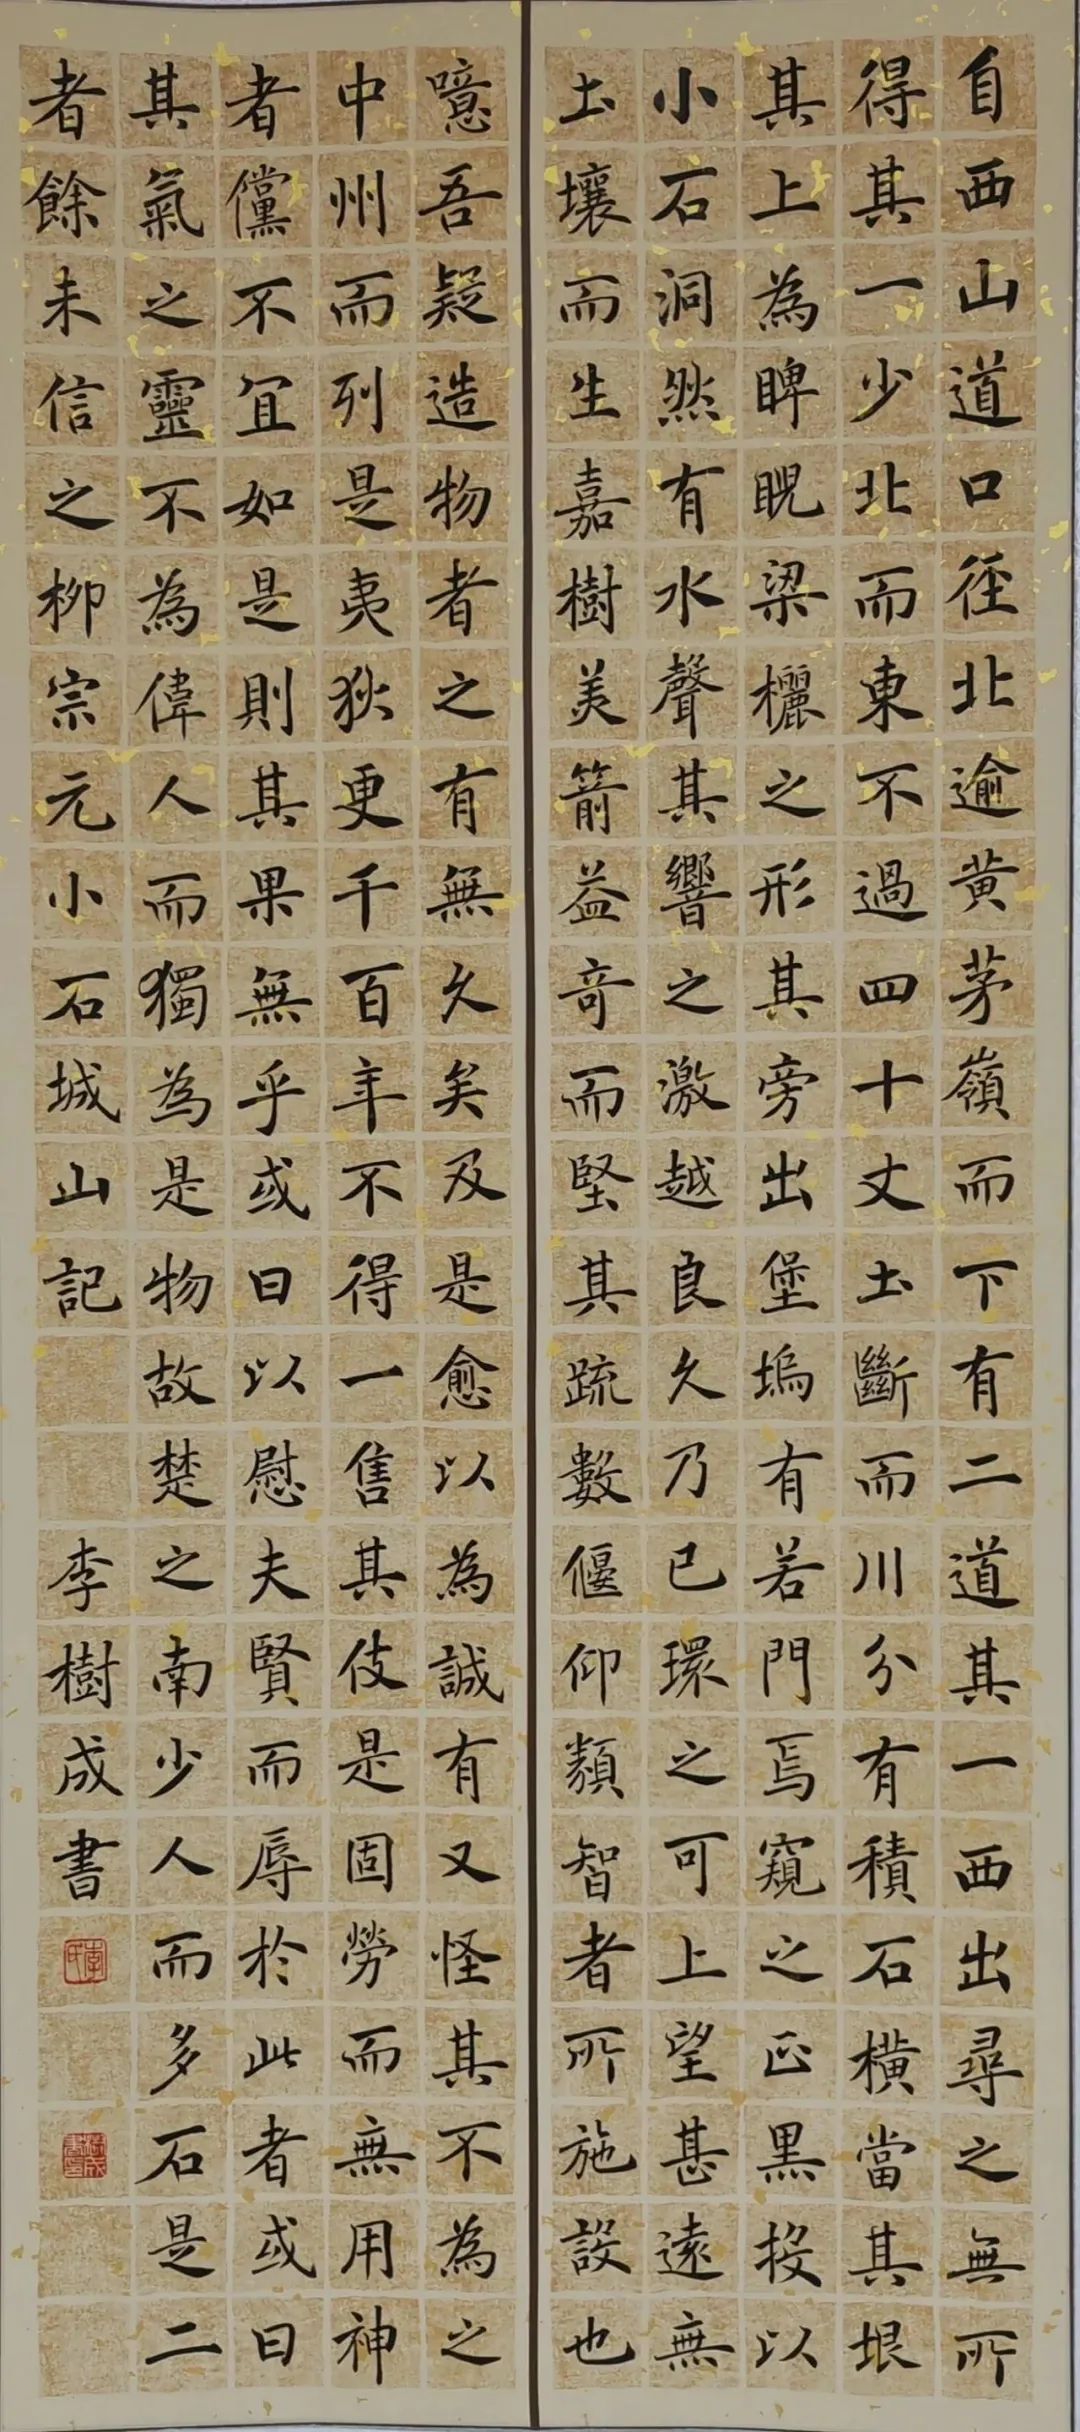 自西山道口徑北逾黄茅嶺而下有二道其一西出尋之無所
得其一少北而東不過四十丈土斷而川分有積石橫當其垠
其上為睥睨梁欐之形其旁出堡塢有若門焉窺之正黑投以
小石洞然有水聲其響之激越良久乃已環之可上望甚遠無
土壤而生嘉樹美箭益奇而堅其疏數偃仰類智者所施設也
噫吾疑造物者之有無久矣及是愈以為誠有又怪其不為之
中州而列是夷狄更千百年不得一售其伎是固勞而無用神
者儻不宜如是則其果無乎或曰以慰夫賢而辱於此者或曰
其氣之靈不為偉人而獨為是物故楚之南少人而多石是二
者餘未信之柳宗元小石城山記
李樹成書
李氏